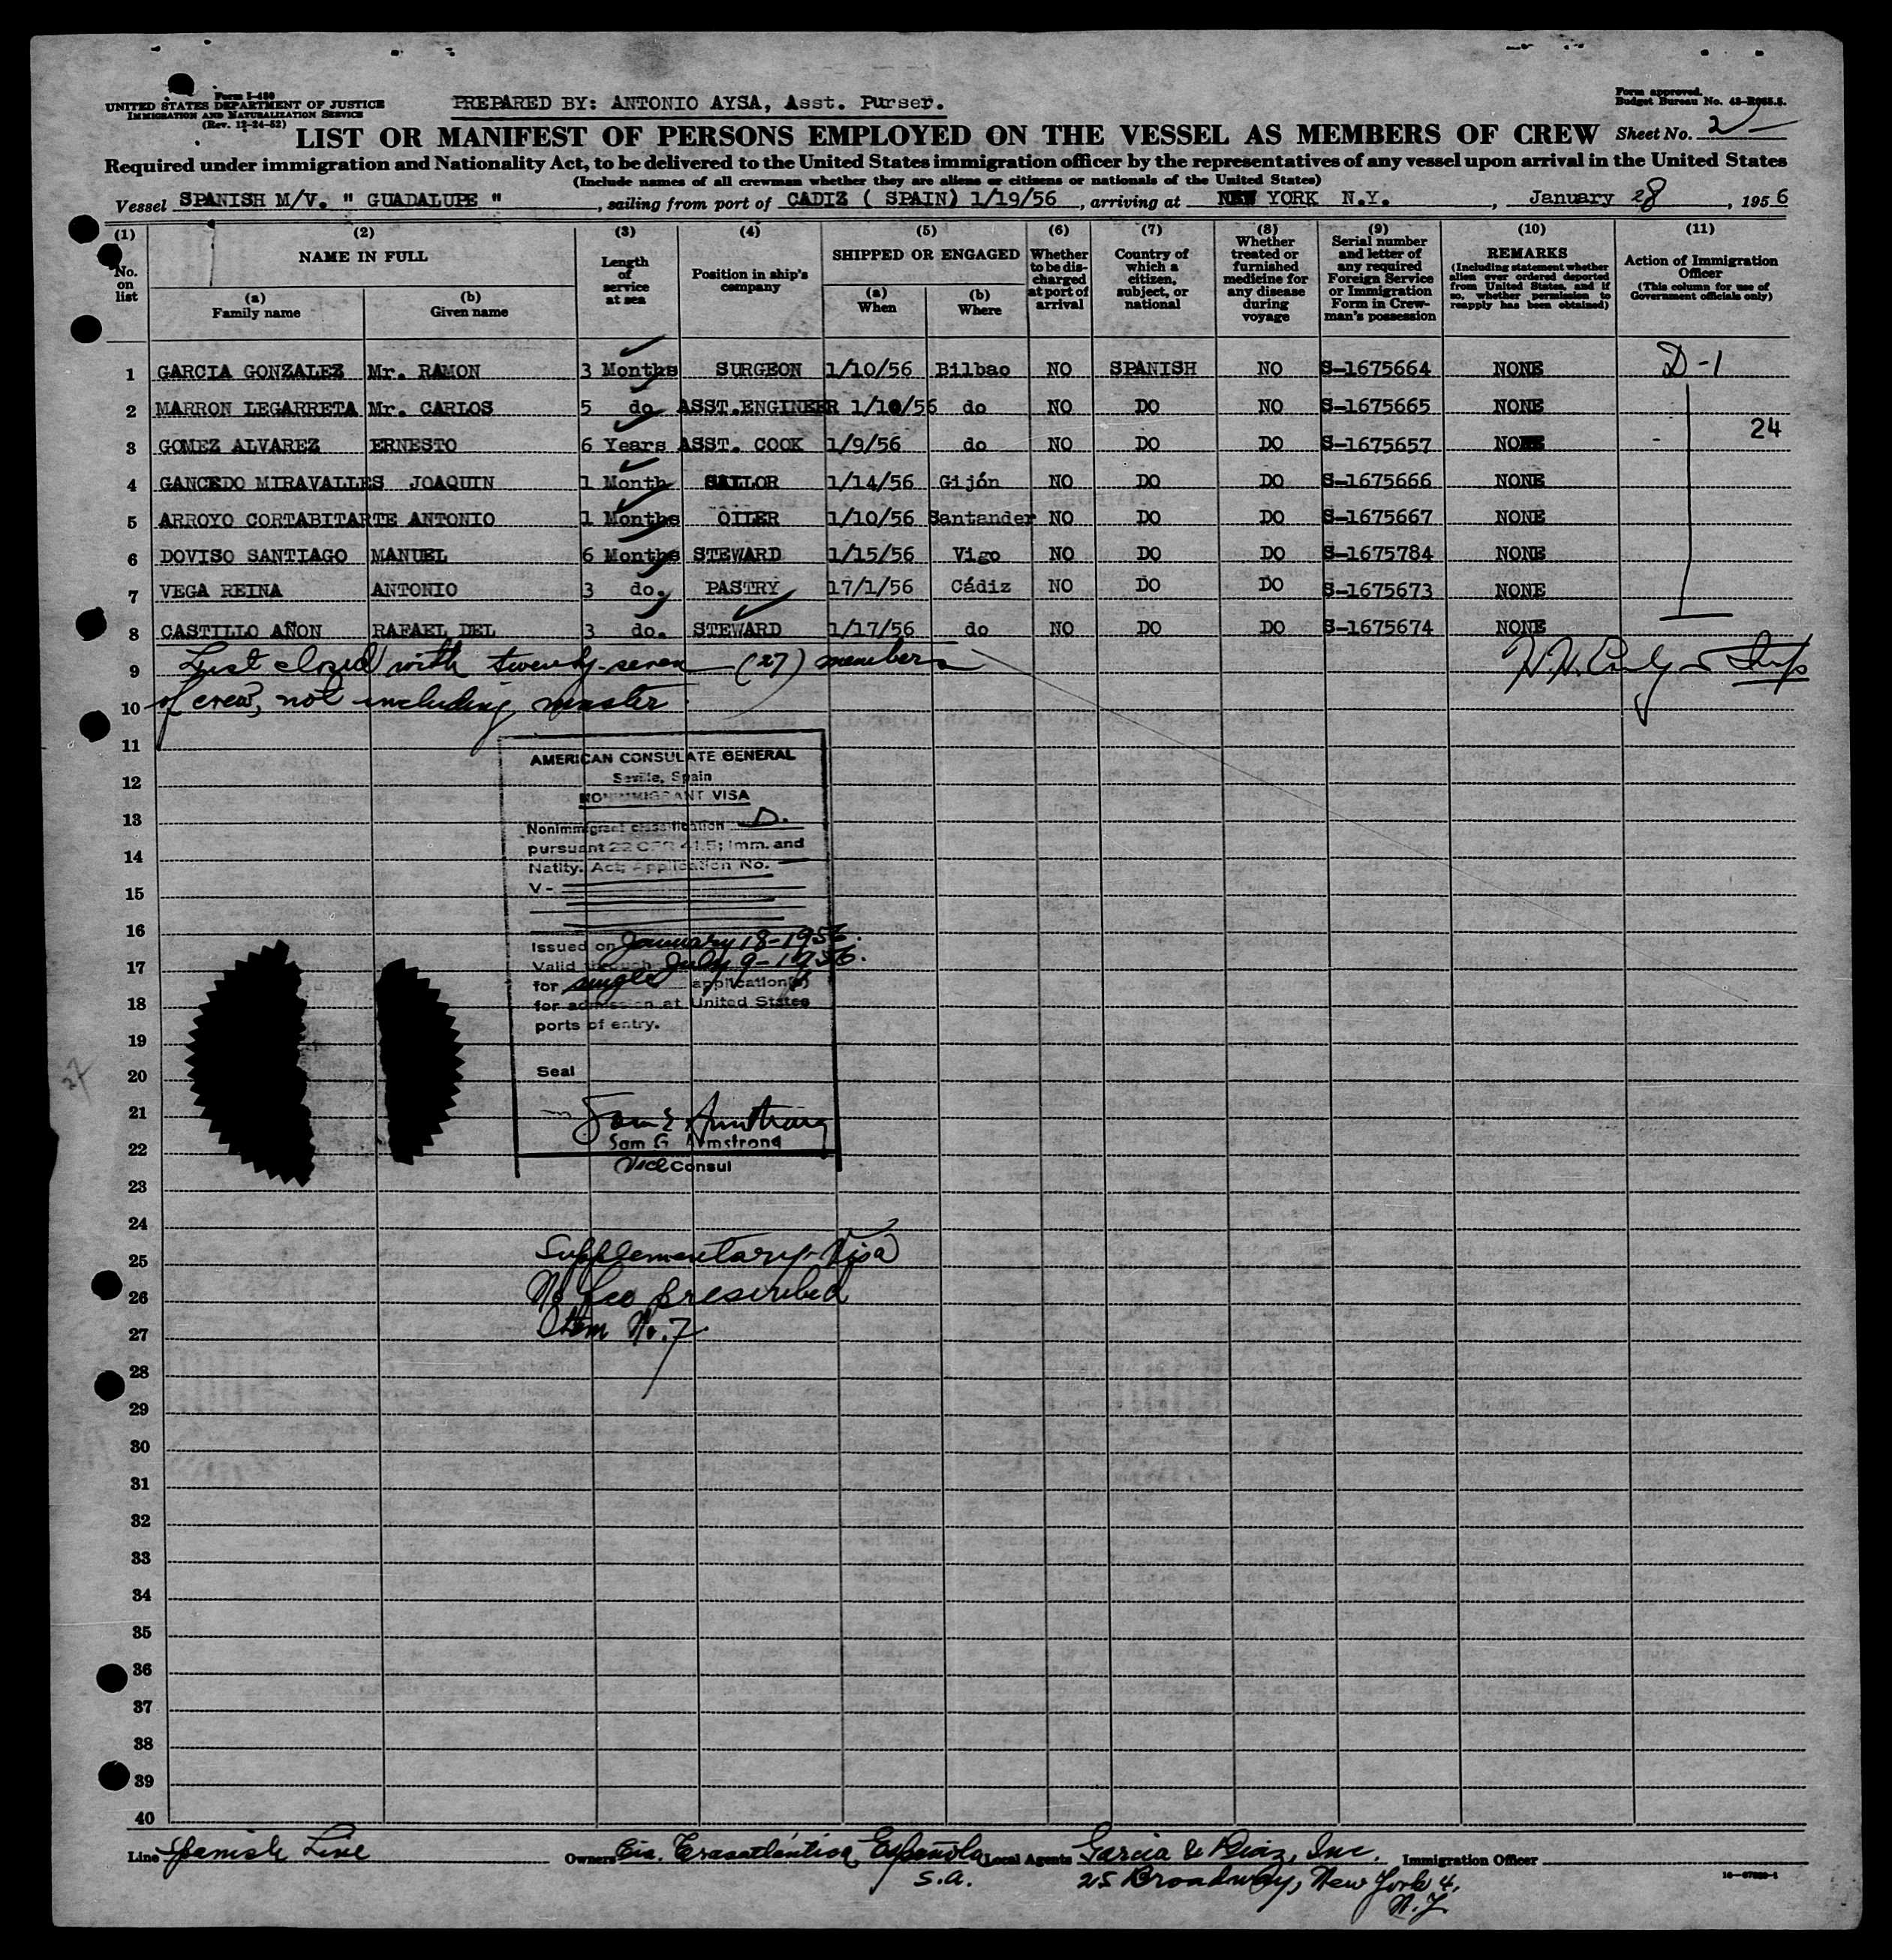 Form I-480
UNITED STATES DEPARTMENT OF JUSTICE
IMMIGRATION AND NATURALIZATION SERVICE
(Rev. 12-24-52)
PREPARED BY: ANTONIO AYSA, Asst. Purser.
Form approved.
Budget Bureau No. 43-R065.5.
LIST OR MANIFEST OF PERSONS EMPLOYED ON THE VESSEL AS MEMBERS OF CREW Sheet No. 2
Required under immigration and Nationality Act, to be delivered to the United States immigration officer by the representatives of any vessel upon arrival in the United States
(Include names of all crewman whether they are aliens or citizens or nationals of the United States)
Vessel SPANISH M/V. " GUADALUPE ", sailing from port of CADIZ ( SPAIN) 1/19/56, arriving at NEW YORK N.Y., January 28, 1956
(1) No. on list
(2) NAME IN FULL
(a) Family name
(b) Given name
(3) Length of service at sea
(4) Position in ship's company
(5) SHIPPED OR ENGAGED
(a) When
(b) Where
(6) Whether to be discharged at port of arrival
(7) Country of which a citizen, subject, or national
(8) Whether treated or furnished medicine for any disease during voyage
(9) Serial number and letter of any required Foreign Service or Immigration Form in Crewman's possession
(10) REMARKS (Including statement whether alien ever ordered deported from United States, and if so, whether permission to reapply has been obtained)
(11) Action of Immigration Officer (This column for use of Government officials only)
1 GARCIA GONZALEZ Mr. RAMON 3 Months SURGEON 1/10/56 Bilbao NO SPANISH NO S-1675664 NONE D-1
2 MARRON LEGARRETA Mr. CARLOS 5 do ASST.ENGINEER 1/10/56 do NO DO NO S-1675665 NONE
24
3 GOMEZ ALVAREZ ERNESTO 6 Years ASST. COOK 1/9/56 do NO DO DO S-1675657 NONE
4 GANCEDO MIRAVALLES JOAQUIN 1 Month SAILOR 1/14/56 Gijón NO DO DO S-1675666 NONE
5 ARROYO CORTABITARTE ANTONIO 1 Months OILER 1/10/56 Santander NO DO DO S-1675667 NONE
6 DOVISO SANTIAGO MANUEL 6 Months STEWARD 1/15/56 Vigo NO DO DO S-1675784 NONE
7 VEGA REINA ANTONIO 3 do. PASTRY 17/1/56 Cádiz NO DO DO S-1675673 NONE
8 CASTILLO AÑON RAFAEL DEL 3 do. STEWARD 1/17/56 do NO DO DO S-1675674 NONE
9 List closed with twenty-seven (27) members
10 of crew, not including master.
11
AMERICAN CONSULATE GENERAL
Seville, Spain
12
NONIMMIGRANT VISA
13
Nonimmigrant classification D.
14 pursuant 22 CFR 41.5; Imm. and
Natlty. Act; Application No.
15 V-
16
Issued on January 18-1956.
17 Valid through July 9-1956.
for single application(s)
18 for admission at United States
ports of entry.
19
20 Seal
27
21
22 Sam G. Armstrong
Vice Consul
23
24
25 Supplementary Visa
26 No fee prescribed
27 Item No. 7
28
29
30
31
32
33
34
35
36
37
38
39
40
Line Spanish Line Owners Cia. Trasatlántica Española S.A. Local Agents Garcia & Diaz, Inc. Immigration Officer
25 Broadway, New York 4, N.Y.